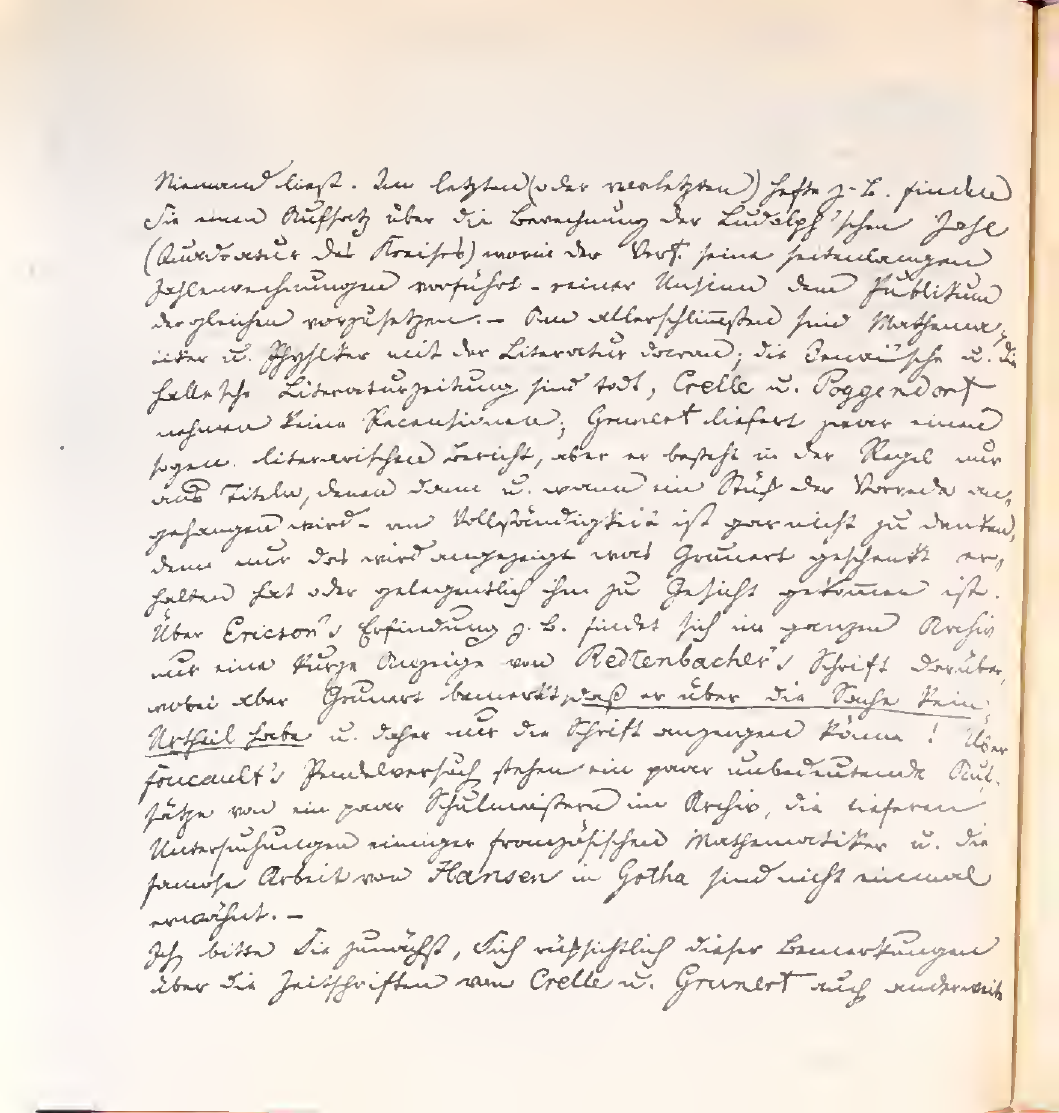 Niemand liest. Im letzten (oder vorletzten) Hefte z. B. finden
Sie einen Aufsatz über die Berechnung der Ludolph'schen Zahl
(Quadratur des Kreises) worin der Verf. seine seitenlangen
Zahlenrechnungen vorführt - reiner Unsinn dem Publikum
dergleichen vorzusetzen. – Am allerschlim̄sten sind Mathema-
tiker u. Physiker mit der Literatur daran; die Jenai'sche u. die
Hallesche Literaturzeitung sind todt, Crelle u. Poggendorf
nehmen keine Recensionen; Grunert liefert zwar einen
sogen. literarischen Bericht, aber er besteht in der Regel nur
aus Titeln, denen dann u. wann ein Stück der Vorrede an-
gehangen wird - an Vollständigkeit ist gar nicht zu denken,
denn nur das wird angezeigt was Grunert geschenkt er-
halten hat oder gelegentlich ihm zu Gesicht gekom̄en ist.
Über Ericson's Erfindung z. B. findet sich im ganzen Archiv
nur eine kurze Anzeige von Redtenbacher's Schrift darüber,
wobei aber Grunert bemerkt, daß er über die Sache kein
Urtheil habe u. daher nur die Schrift anzeigen könne! Über
Foucault's Pendelversuch stehen ein paar unbedeutende Auf-
sätze von ein paar Schulmeistern im Archiv, die tieferen
Untersuchungen einiger französischen Mathematiker u. die
famose Arbeit von Hansen in Gotha sind nicht einmal
erwähnt. –
Ich bitte Sie zunächst, Sich rücksichtlich dieser Bemerkungen
über die Zeitschriften von Crelle u. Grunert auch anderweit